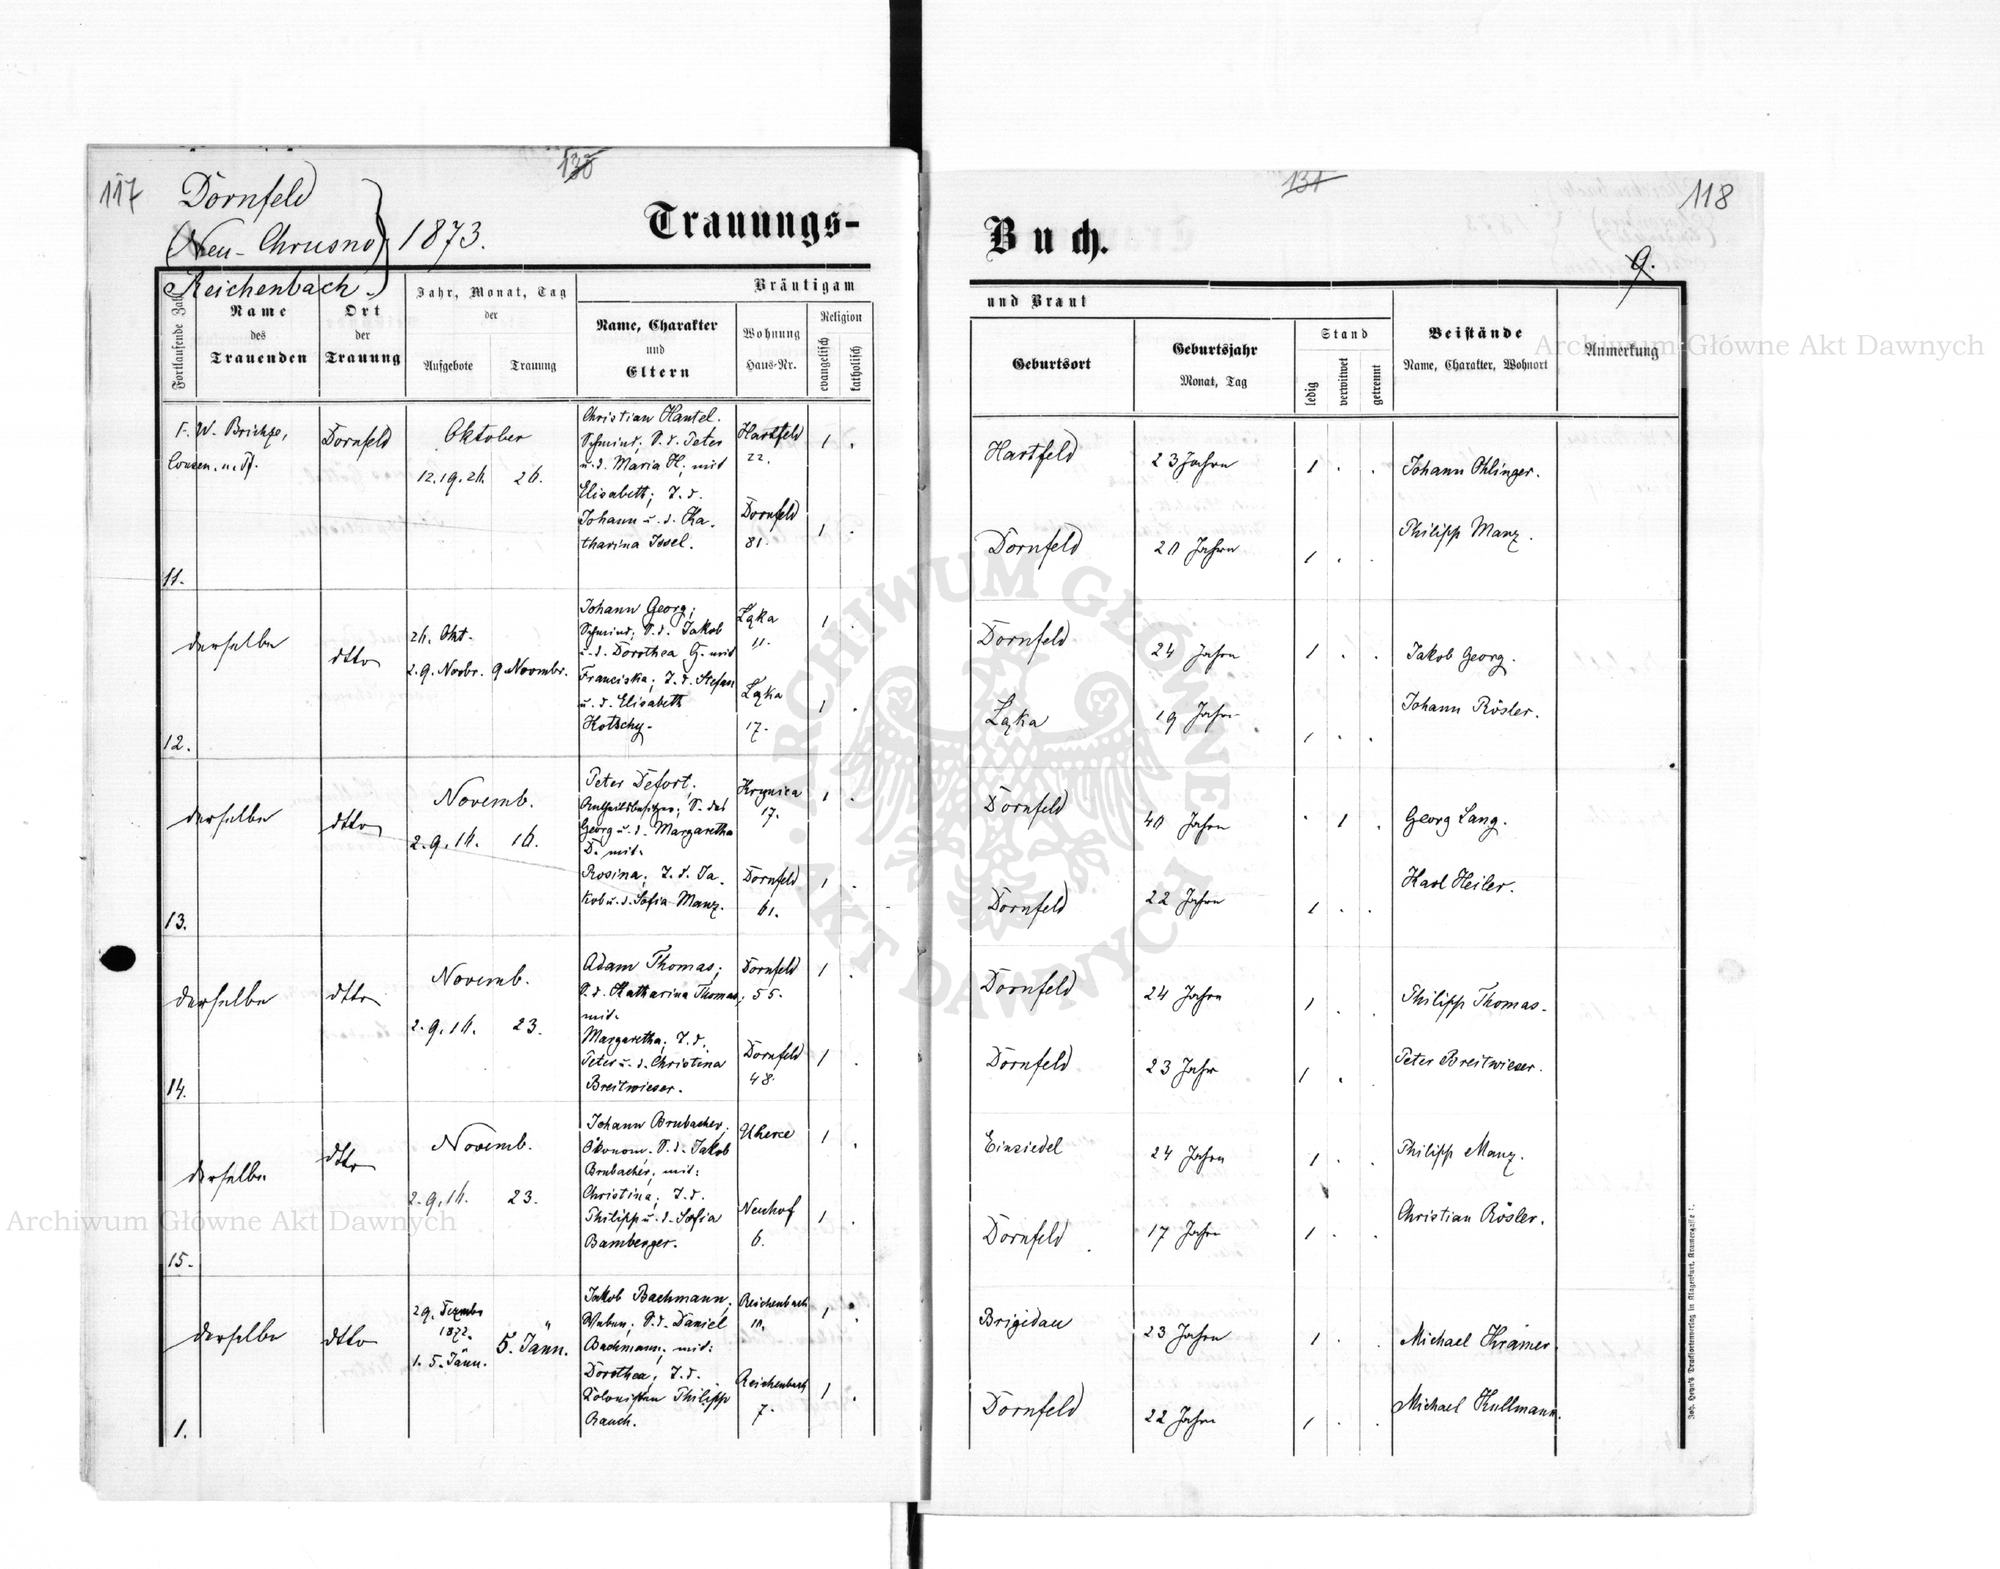 117
130
Dornfeld
(Neu-Chrusno) 1873.
Reichenbach.
Trauungs-
Fortlaufende Zahl
Name
des
Trauenden
Ort
der
Trauung
Jahr, Monat, Tag
der
Aufgebote
Trauung
Bräutigam
Name, Charakter
und
Eltern
Wohnung
Haus-Nr.
Religion
evangelisch
katholisch
11.
F. W.
Dornfeld
Oktober
12. 19. 26.
26.
Christian Hantel.
Schmied; S. d. Peter
u. d. Maria H; mit
Elisabeth; T. d.
Johann u. d. Ka-
tharina Issel.
Hartfeld
22.
Dornfeld
81.
1 .
1 .
12.
derselbe
dtto
26. Okt.
2. 9. Novbr.
9. Novembr.
Johann Georg;
Schmied; S. d. Jakob
u. d. Dorothea G. mit
Franciska; T. d. Stefan
u. d. Elisabeth
Kotschy.
Łąka
11.
Łąka
17.
1 .
1 .
13.
derselbe
dtto
Novemb.
2. 9. 16.
16.
Peter Defort,
Georg u. d. Margaretha
D. mit.
Rosina; T. d. Ja-
kob u. d. Sofia Manz.
Krynica
17.
Dornfeld
61.
1 .
1 .
14.
derselbe
dtto
Novemb.
2. 9. 16.
23.
Adam Thomas;
S. d. Katharina Thomas,
mit.
Margaretha; T. d.
Peter u. d. Christina
Breitwieser.
Dornfeld
55.
Dornfeld
48.
1 .
1 .
15.
derselbe
dtto
Novemb.
2. 9. 16.
23.
Johann Brubacher,
Ökonom. S. d. Jakob
Brubacher; mit:
Christina; T. d.
Philipp u. d. Sofia
Bamberger.
Uherce
Neuhof
6.
1 .
1 .
1.
derselbe
dtto
29.
1872.
1. 5. Jänn.
5. Jänn.
Jakob Bachmann;
Weber; S. d. Daniel
Bachmann; mit:
Dorothea; T. d.
Kolonisten Philipp
Rauch.
Reichenbach
10.
Reichenbach
7.
1 .
1 .
131
118
Buch.
9.
und Braut
Geburtsort
Geburtsjahr
Monat, Tag
Stand
ledig
verwitwet
getrennt
Beistände
Name, Charakter, Wohnort
Anmerkung
Hartfeld
23 Jahre
1 . .
Johann Ohlinger.
Dornfeld
20 Jahre
1 . .
Philipp Manz.
Dornfeld
24 Jahre
1 . .
Jakob Georg.
Łąka
19 Jahre
1 . .
Johann Rösler.
Dornfeld
40 Jahre
. 1 .
Georg Lang.
Dornfeld
22 Jahre
1 . .
Karl Heiler.
Dornfeld
24 Jahre
1 . .
Philipp Thomas.
Dornfeld
23 Jahre
1 . .
Peter Breitwieser.
Einsiedel
24 Jahre
1 . .
Philipp Manz.
Dornfeld
17 Jahre
1 . .
Christian Rösler.
Brigidau
23 Jahre
1 . .
Michael Krämer.
Dornfeld
22 Jahre
1 . .
Michael Kullmann.
Joh. Heyn's Drucksortenverlag in Klagenfurt, Kramergasse 1.
Archiwum Główne Akt Dawnych
Archiwum Główne Akt Dawnych
ARCHIWUM GŁÓWNE AKT DAWNYCH